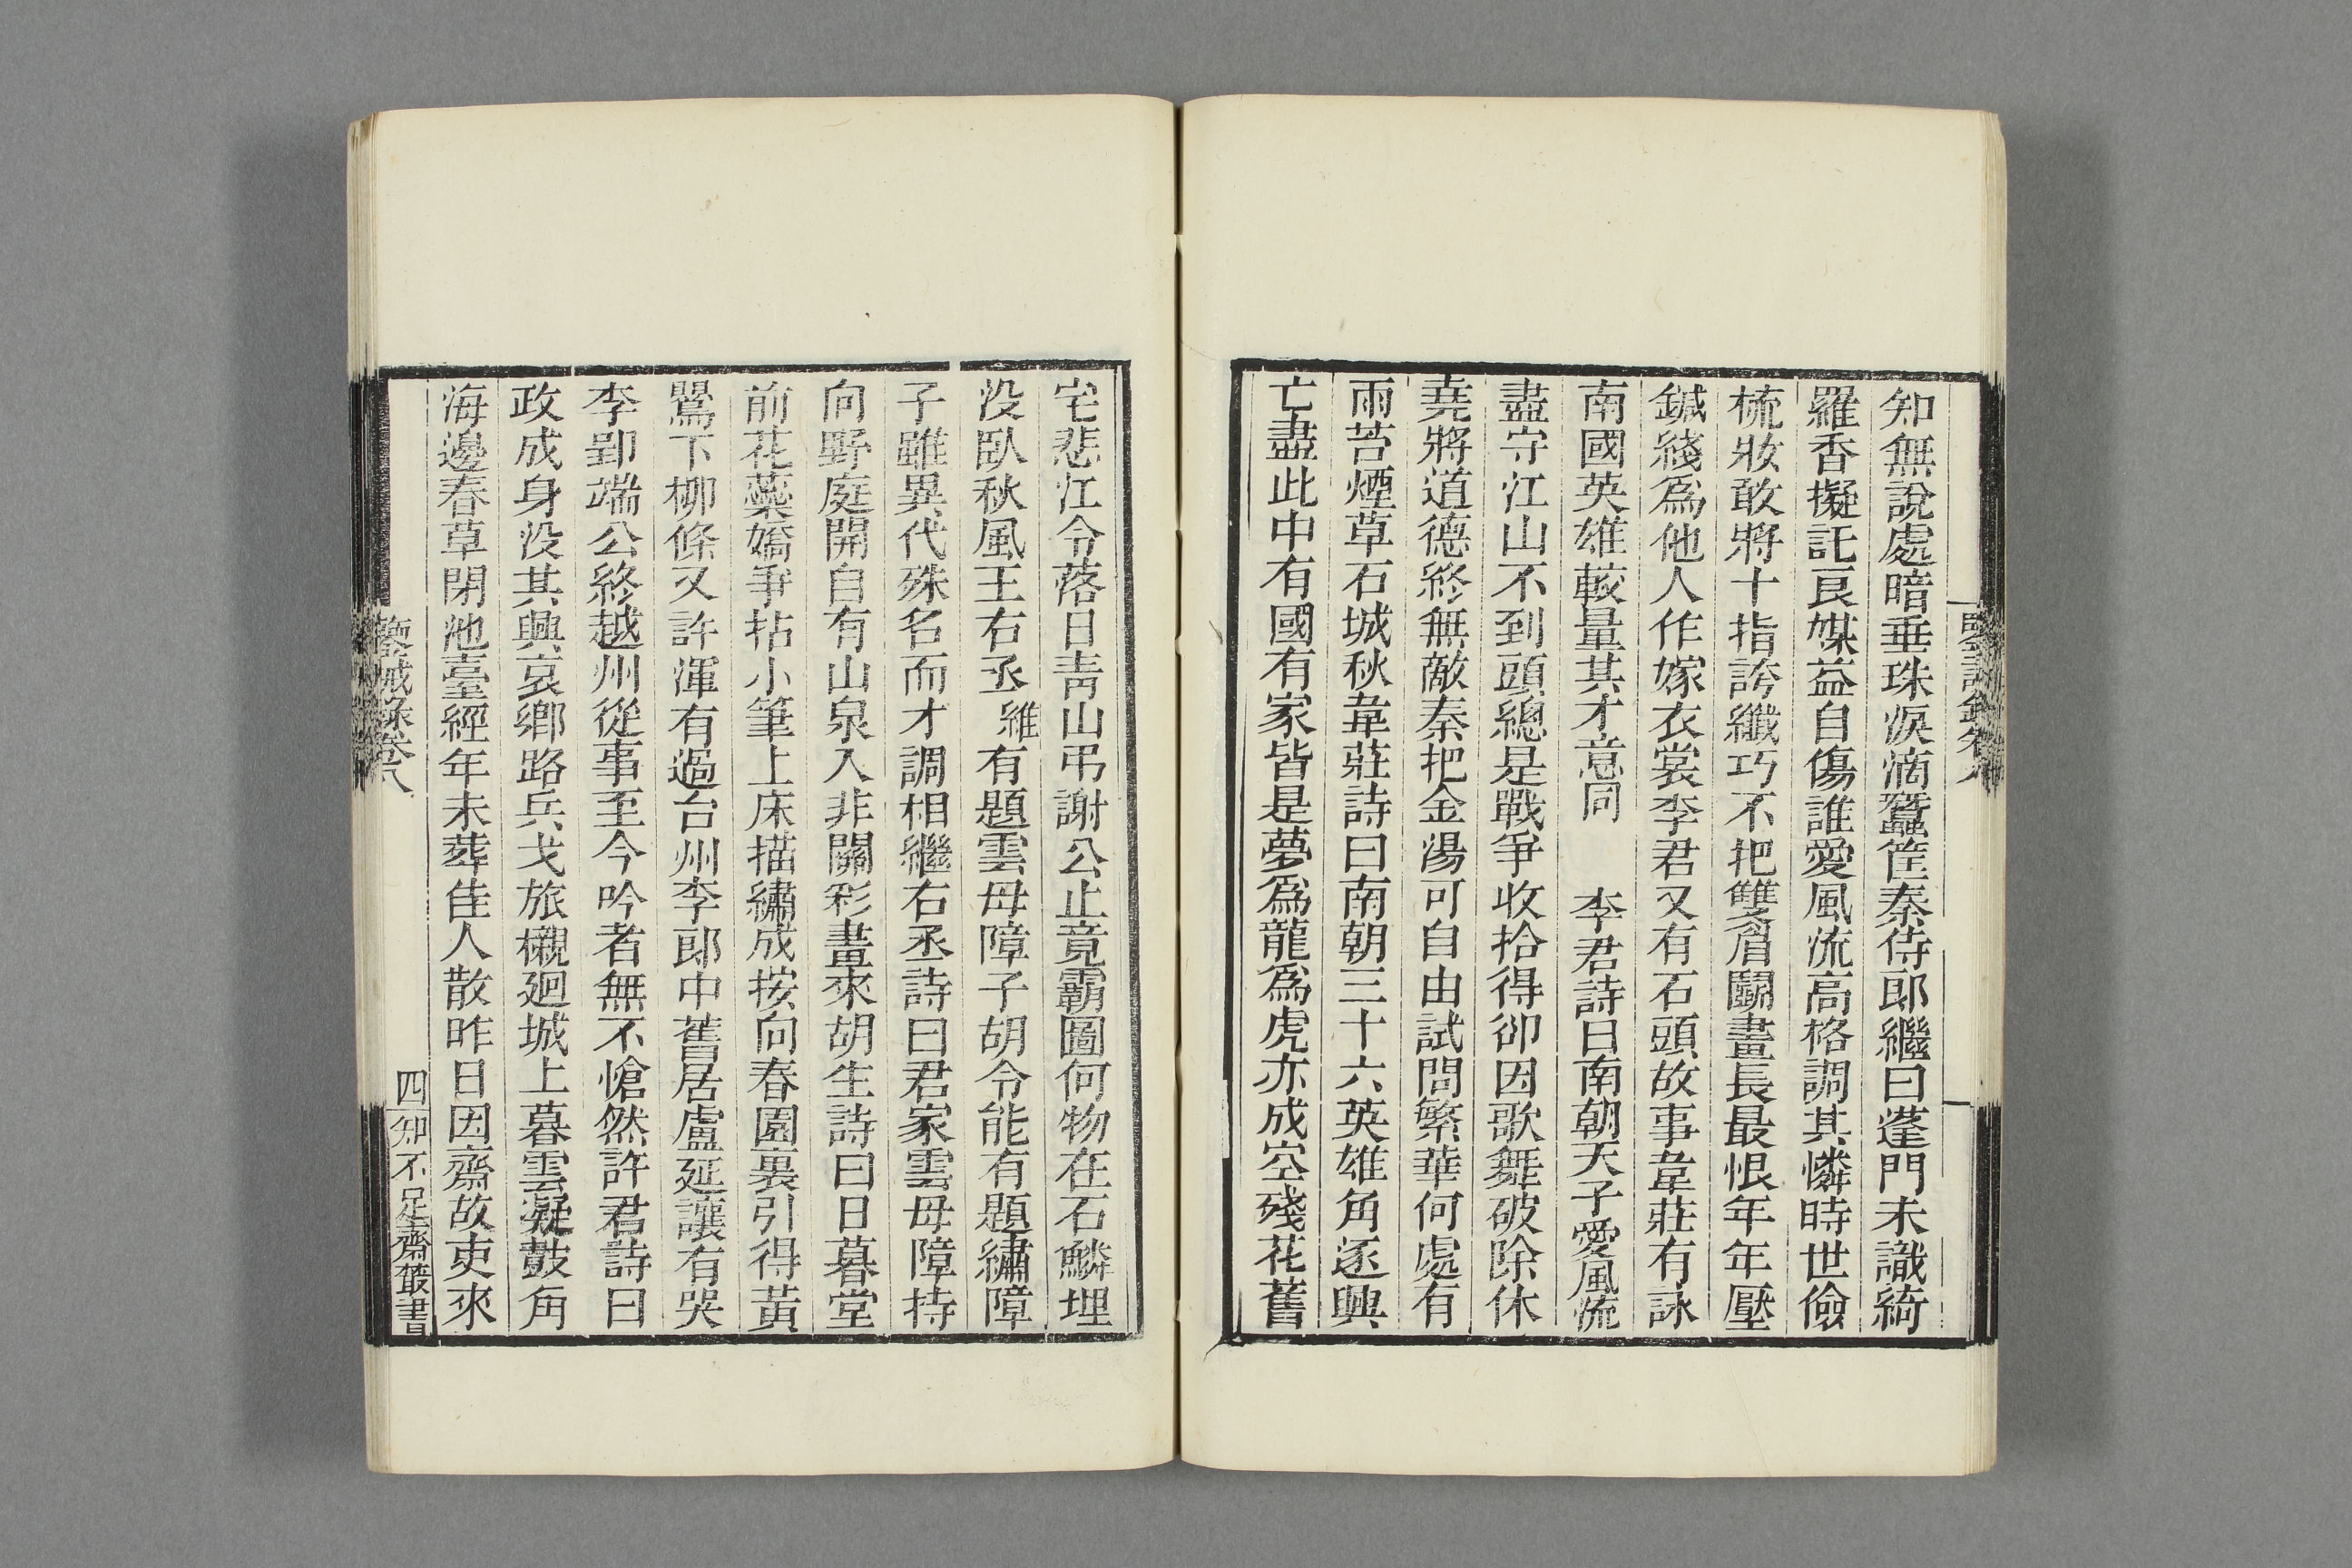 知無說處暗垂珠淚滴蠶筐秦侍郎繼曰蓬門未識綺
羅香擬託良媒益自傷誰愛風流高格調其憐時世儉
梳妝敢將十指誇纖巧不把雙眉鬭畫長最恨年年壓
鍼綫爲他人作嫁衣裳李君又有石頭故事韋莊有詠
南國英雄較量其才意同　李君詩曰南朝天子愛風流
盡守江山不到頭總是戰爭收拾得卻因歌舞破除休
堯將道德終無敵秦把金湯可自由試問繁華何處有
雨苔煙草石城秋韋莊詩曰南朝三十六英雄角逐興
亡盡此中有國有家皆是夢爲龍爲虎亦成空殘花舊
宅悲江令落日青山弔謝公止竟霸圖何物在石麟埋
没臥秋風王右丞維有題雲母障子胡令能有題繡障
子雖異代殊名而才調相繼右丞詩曰君家雲母障持
向野庭開自有山泉入非關彩畫來胡生詩曰日暮堂
前花蘂嬌爭拈小筆上床描繡成按向春園裏引得黃
鸎下柳條又許渾有過台州李郎中舊居盧延讓有哭
李郢端公終越州從事至今吟者無不愴然許君詩曰
政成身没其興哀鄉路兵戈旅櫬廻城上暮雲凝鼓角
海邊春草閉池臺經年未葬佳人散昨日因齋故吏來
鑒誡錄卷八
四
知不足齋叢書